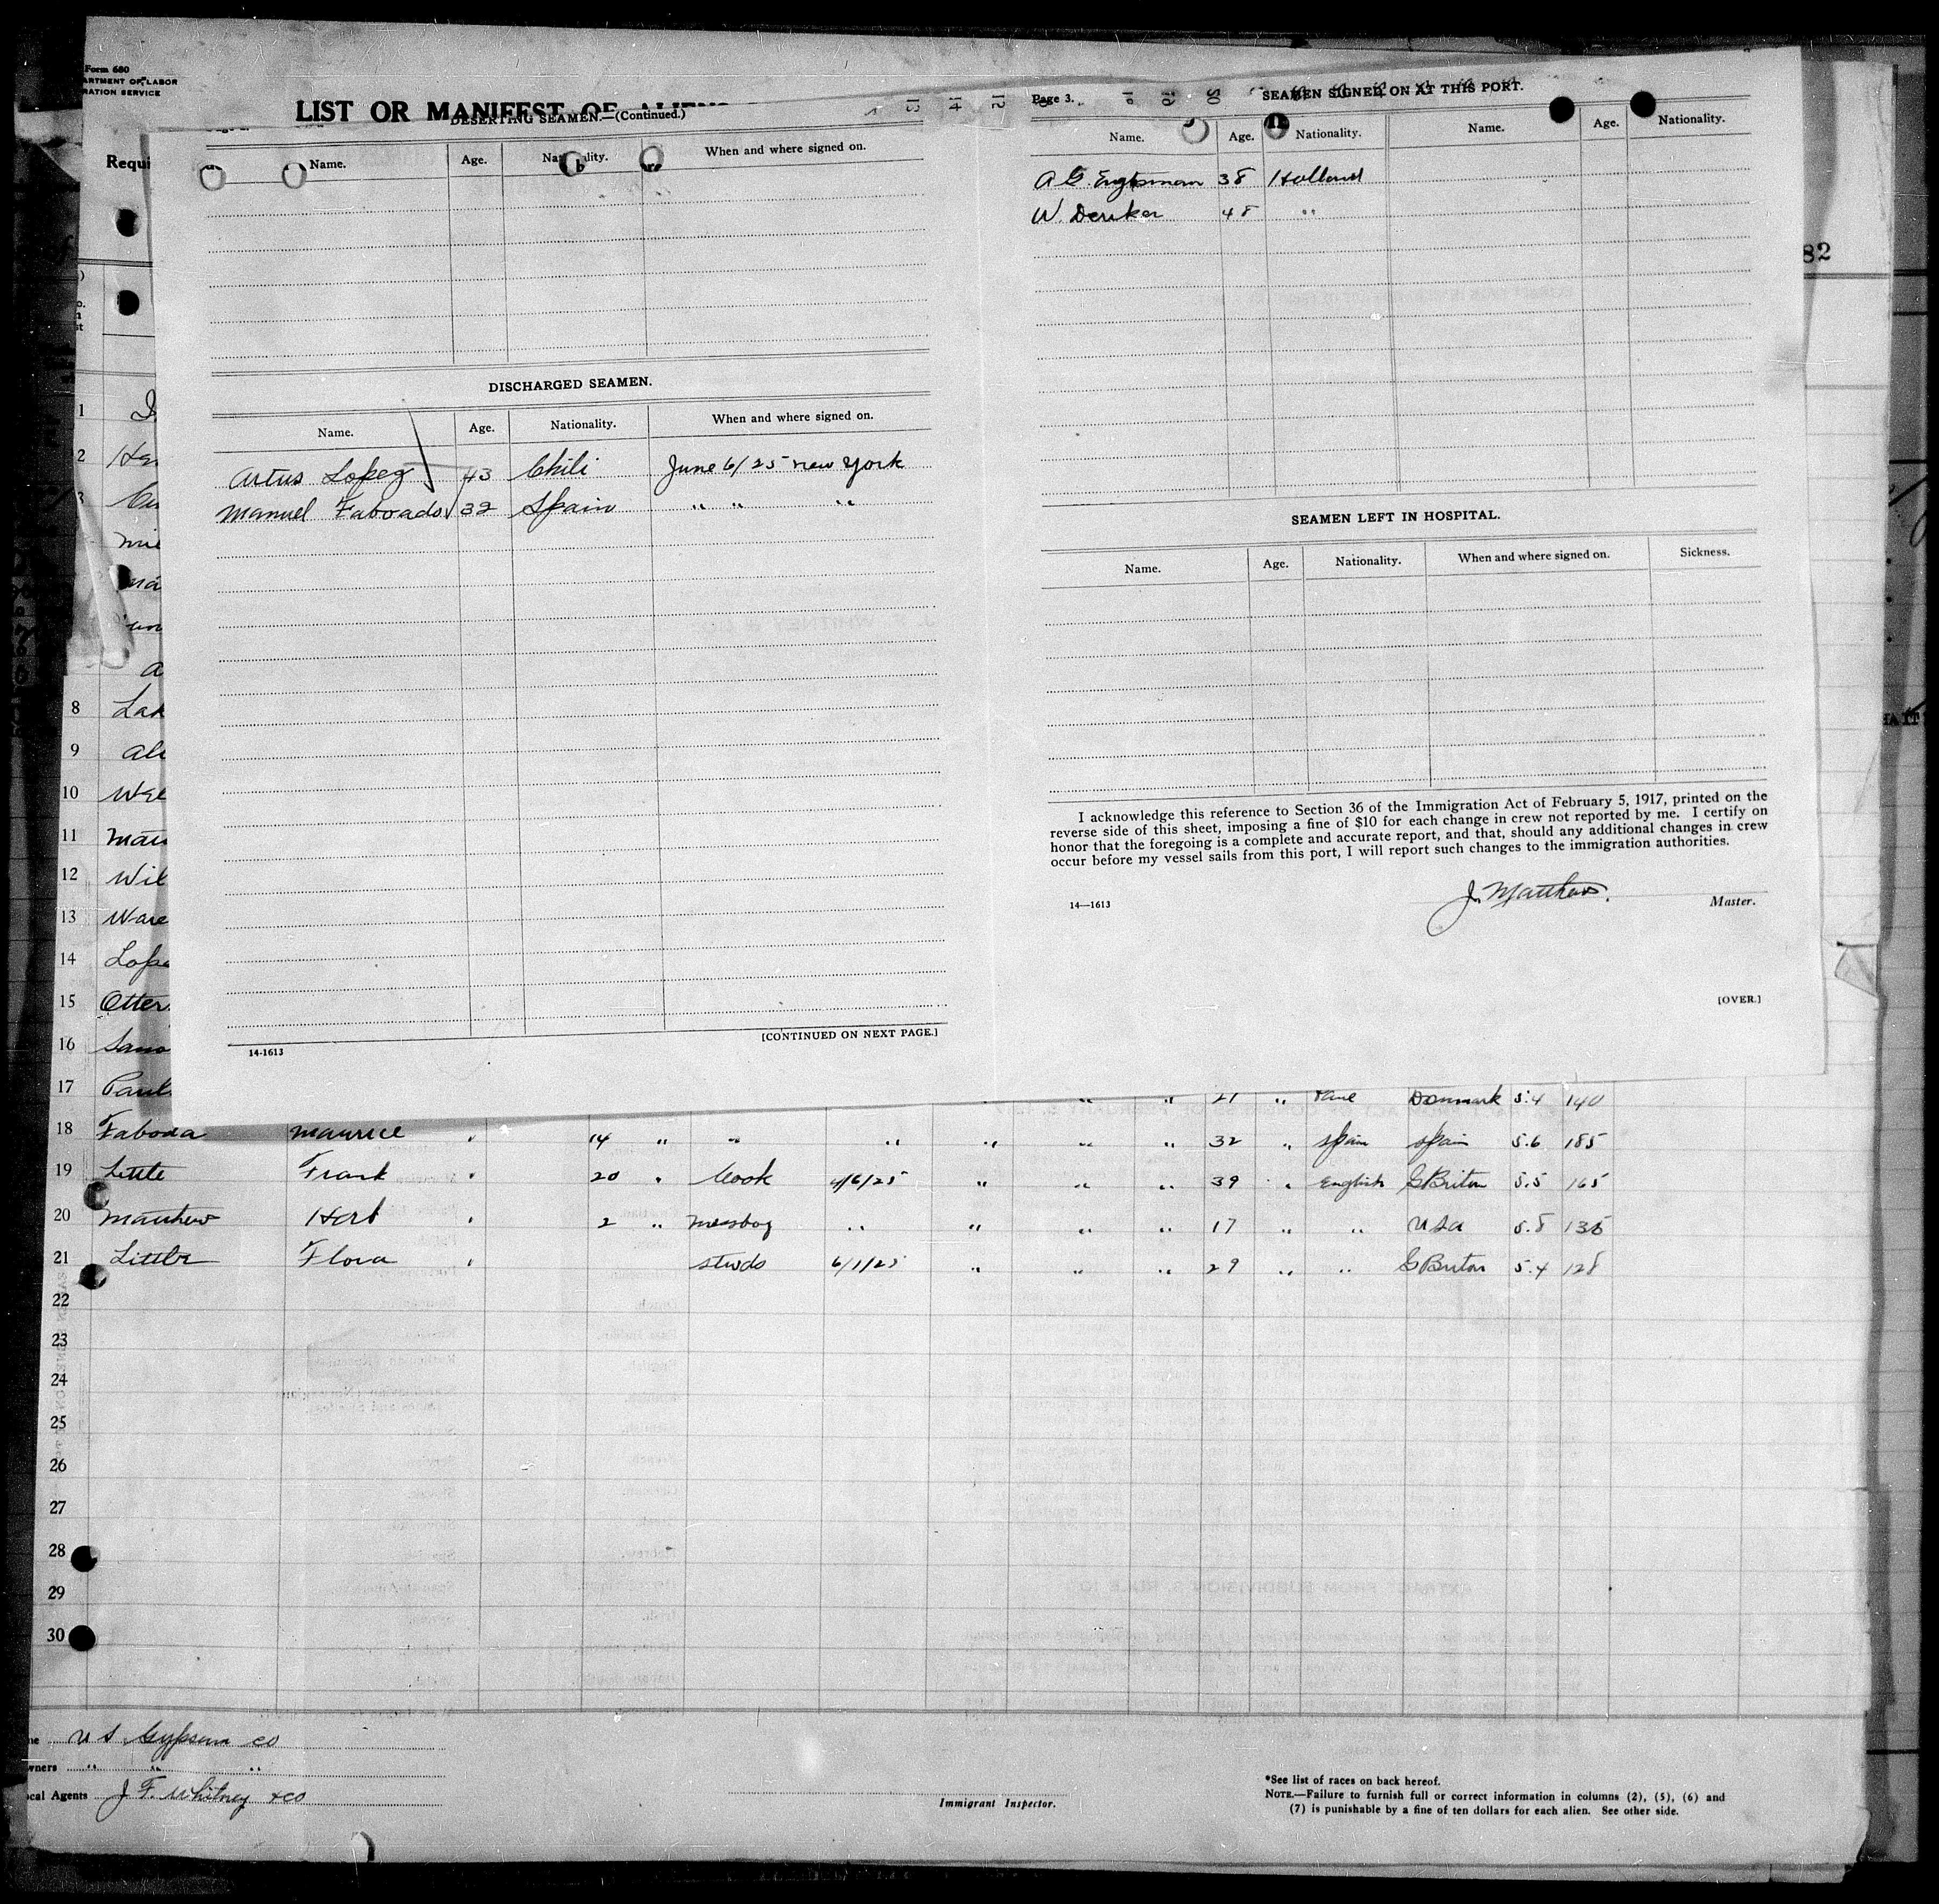 Form 680
ARTMENT OF LABOR
RATION SERVICE
LIST OR MANIFEST OF ALIENS
Requi
DESERTING SEAMEN.—(Continued.)
Name. Age. Nationality. When and where signed on.
DISCHARGED SEAMEN.
Name. Age. Nationality. When and where signed on.
Artus Lopez 43 Chili June 6/25 New York
Manuel Faboado 32 Spain " " "
14-1613
[CONTINUED ON NEXT PAGE.]
Page 3.
SEAMEN SIGNED ON AT THIS PORT.
Name. Age. Nationality. Name. Age. Nationality.
A G. Englsman 38 Holland
W. Deruker 48 "
SEAMEN LEFT IN HOSPITAL.
Name. Age. Nationality. When and where signed on. Sickness.
I acknowledge this reference to Section 36 of the Immigration Act of February 5, 1917, printed on the
reverse side of this sheet, imposing a fine of $10 for each change in crew not reported by me. I certify on
honor that the foregoing is a complete and accurate report, and that, should any additional changes in crew
occur before my vessel sails from this port, I will report such changes to the immigration authorities.
J. Matthews.
14—1613
Master.
[OVER.]
82
1
2
3
8 Lak
9 Ale
10 Wel
11 Mau
12 Wil
13 Ware
14 Lope
15 Otter
16 Sano
17 Paul " " " 21 " Dane Danmark 5.4 140
18 Faboda Maurice " 14 " " " " " " 32 " Spain Spain 5.6 185
19 Little Frank " 20 " Cook 4/6/25 " " " 39 " English G Briton 5.5 165
20 Matthew Herb " 2 " Messboy " " " " 17 " " USA 5.8 135
21 Little Flora " Stwds 6/1/25 " " " 29 " " G Briton 5.4 128
22
23
24
25
26
27
28
29
30
U S Gypsum Co
wners " " "
cal Agents J F. Whitney & Co
Immigrant Inspector.
*See list of races on back hereof.
NOTE.—Failure to furnish full or correct information in columns (2), (5), (6) and
(7) is punishable by a fine of ten dollars for each alien. See other side.